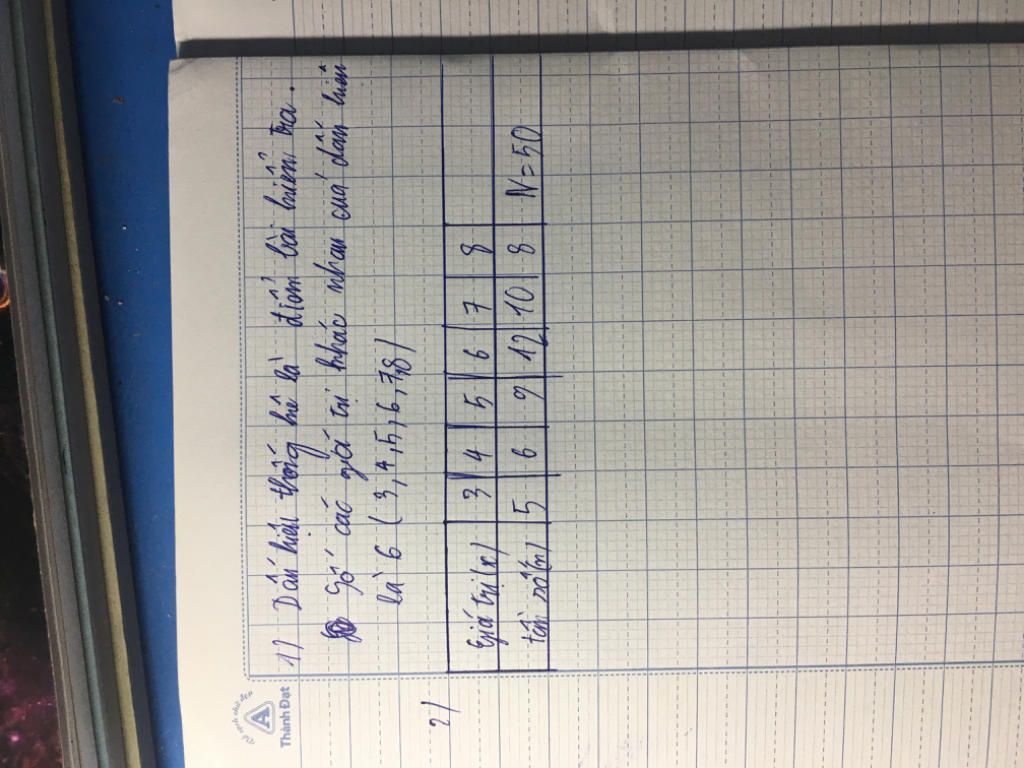 Vở sạch chữ đẹp
A
Thành Đạt
1/ Dấu hiệu thống kê là điểm bài kiểm tra.
Số các giá trị khác nhau của dấu hiệu
là 6 (3,4,5,6,7,8)
2/
Giá trị (x) 3 4 5 6 7 8
tần số(n) 5 6 9 12 10 8 N=50